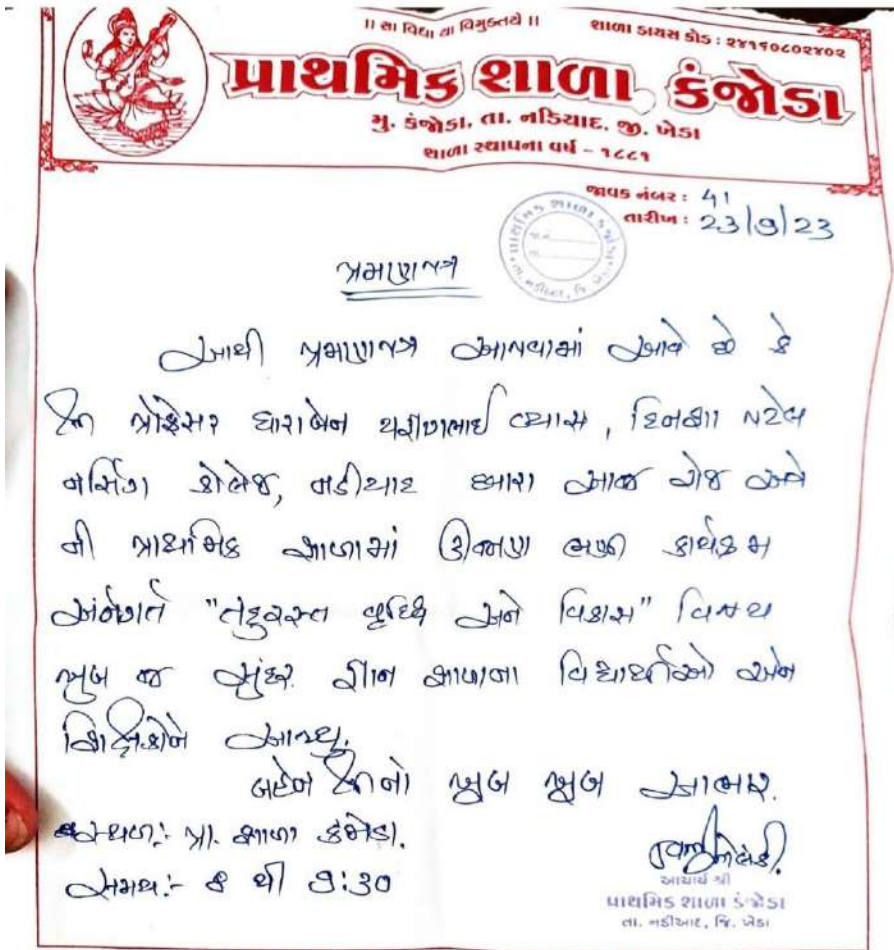 ।। સા વિદ્યા યા વિમુક્તયે ।।
શાળા ડાયસ કોડ : ૨૪૧૬૦૮૦૨૪૦૨
પ્રાથમિક શાળા, કંજોડા
મુ. કંજોડા, તા. નડિયાદ, જી. ખેડા
શાળા સ્થાપના વર્ષ - ૧૮૮૧
જાવક નંબર : 41
તારીખ : 23/9/23
પ્રમાણપત્ર
આથી પ્રમાણપત્ર આપવામાં આવે છે કે
પ્રોફેસર ધારાબેન વ્યાસ, દિનશા પટેલ
નર્સિંગ કોલેજ, નડીયાદ દ્વારા આજ રોજ અત્રે
ની પ્રાથમિક શાળામાં કાર્યક્રમ
અંતર્ગત "તંદુરસ્ત વૃધ્ધિ અને વિકાસ" વિષય
ખુબ જ સુંદર જ્ઞાન શાળાના વિદ્યાર્થીઓ અને
શિક્ષકોને આપ્યુ.
બહેન નો ખુબ ખુબ આભાર.
સ્થળ:- પ્રા. શાળા કંજોડા.
સમય:- 8 થી 9:30
આચાર્ય શ્રી
પ્રાથમિક શાળા કંજોડા
તા. નડીઆદ, જિ. ખેડા